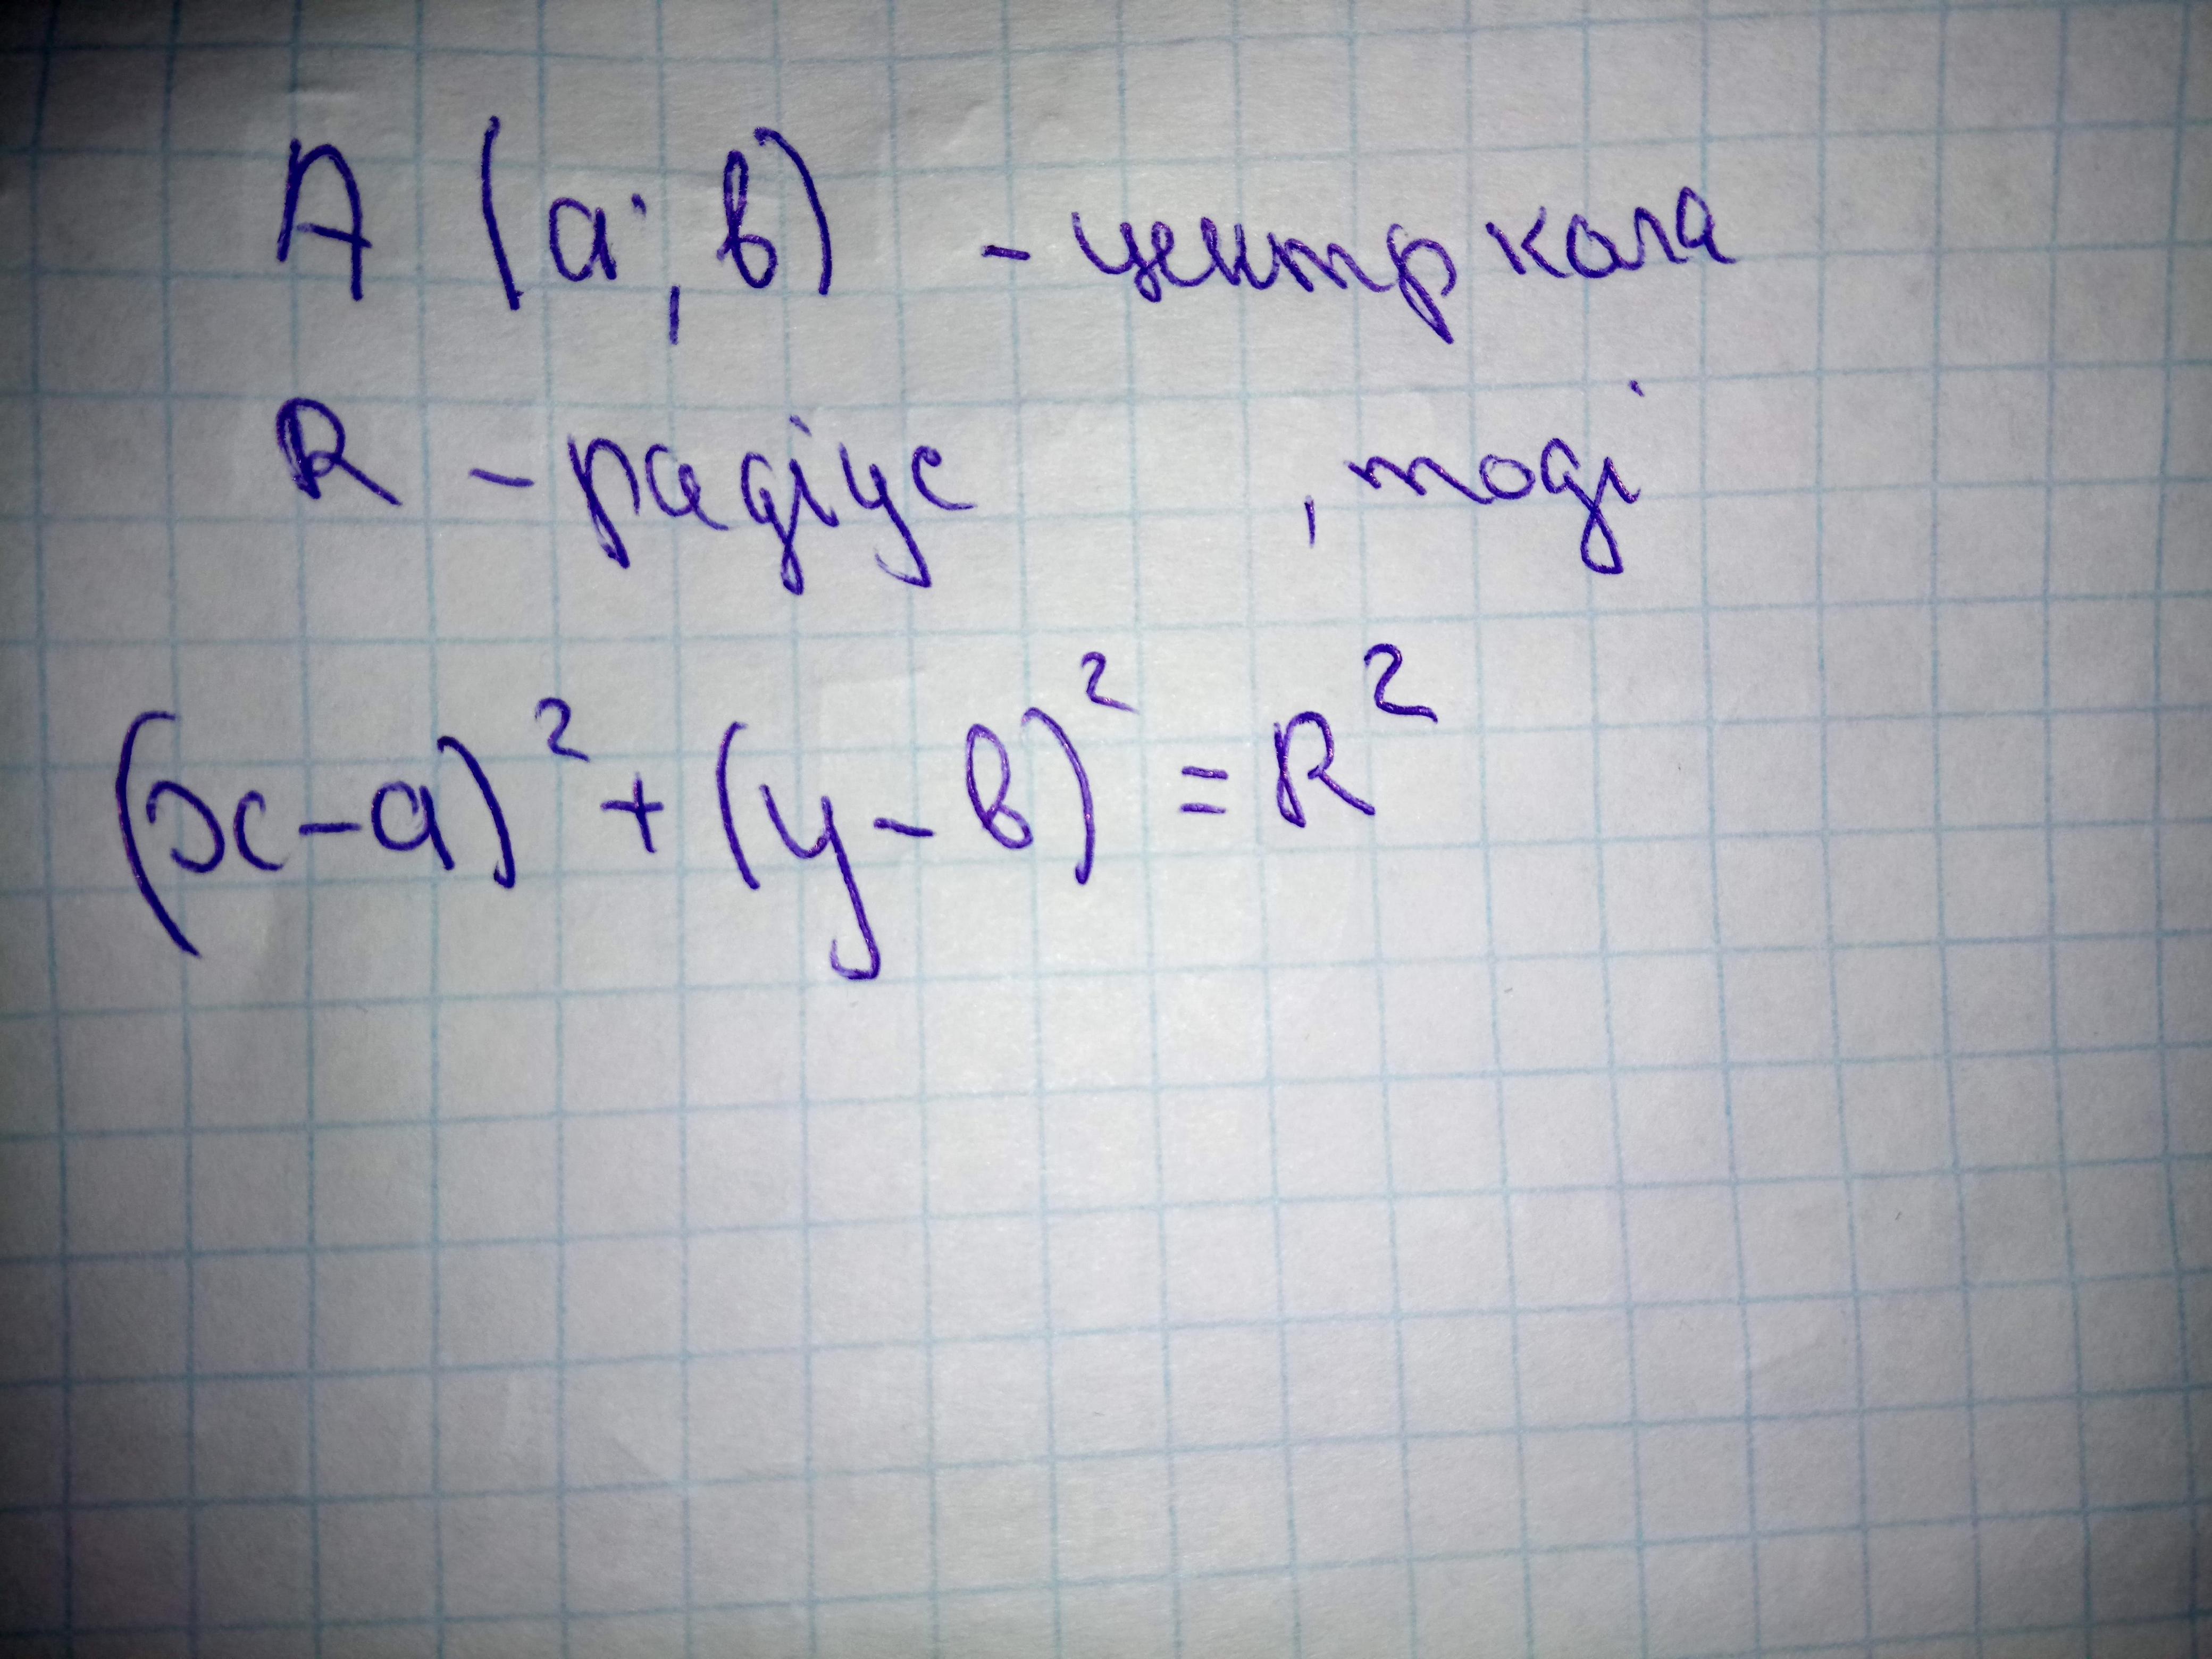 A (a; b) - центр кола
R - радіус , тоді
(x-a)² + (y-b)² = R²